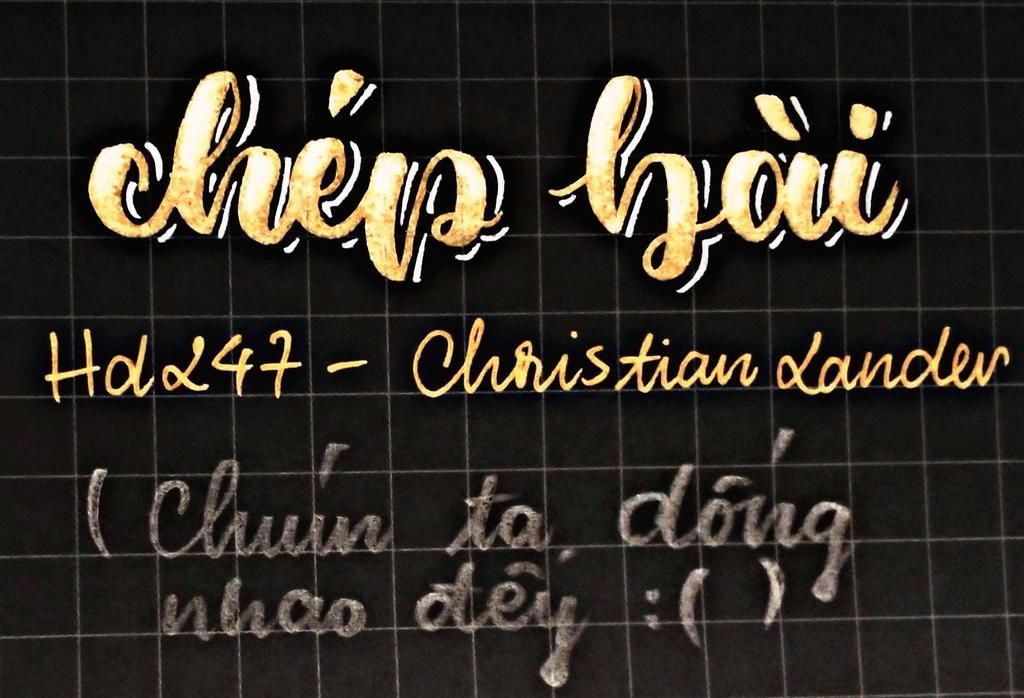 chép bài
Hd247 - Christian Lander
( Chuín ta dống
nhao đếy :( )